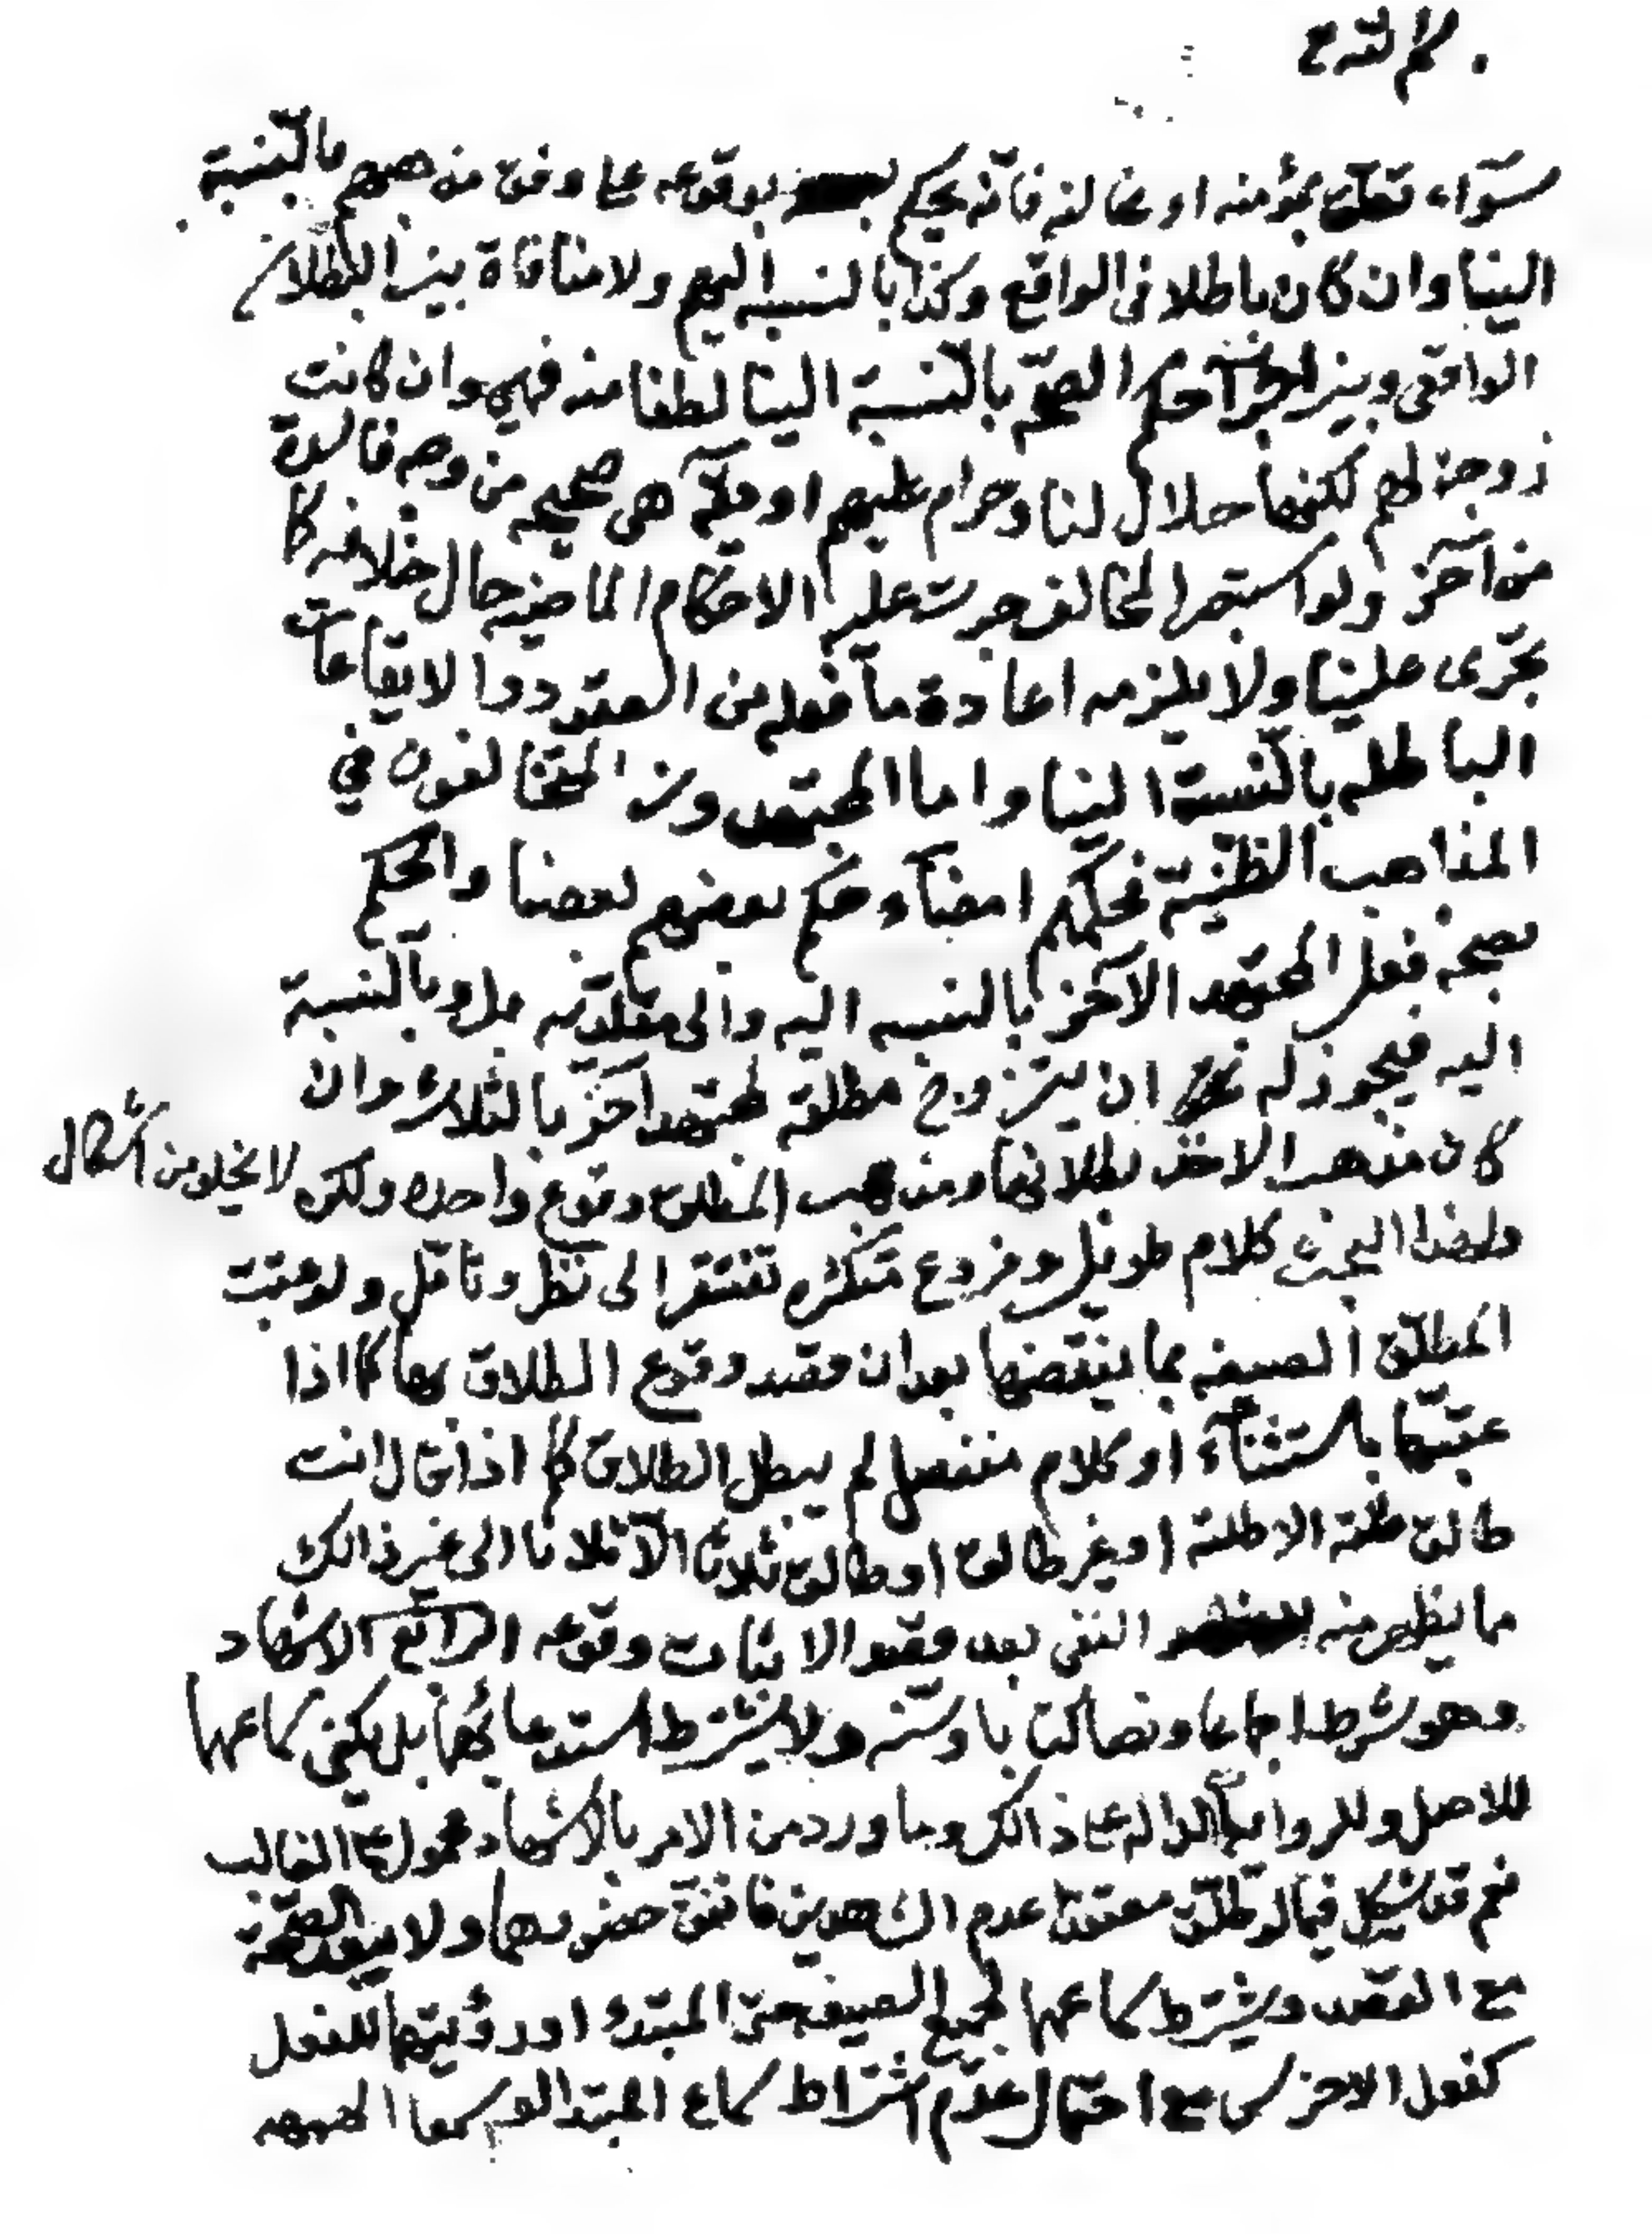 سوآء تعلق بمؤمنه او مخالفه فانه يحكم بوقوعه على وفق مذهبهم بالنسبة
الينا وان كان باطلا في الواقع وكذا بالنسبه اليهم ولا منافاة بين البطلان
الواقعي وبين اجرآء حكم الصحة بالنسبة الينا لطفا منه فهي وان كانت
زوجة لهم لكنها حلال لنا وحرام عليهم او هي صحيحه من وجه فاسدة
من آخر ولو استبصر المخالف جرت عليه الاحكام الماضيه حال خلافه كما
تجرى علينا ولا يلزمه اعادة ما فعله من العقود والايقاعات
الباطله بالنسبة الينا واما المجتهدون المتخالفون في
المذاهب الظنية فحكمهم امضآء حكم بعضهم لبعضا والحكم
بصحة فعل المجتهد الآخر بالنسبه اليه والى مقلديه بل وبالنسبة
اليه فيجوز له ان يتزوج مطلقة لمجتهد آخر بالثلاث وان
كان مذهب الاخذ بطلانها ومذهب المطلق وقوع واحده ولكنه لا يخلو من اشكال
ولهذا البحث كلام طويل وفروع متكثره تفتقر الى نظر وتامل ولو عقبت
المطلق الصيغه بما ينقضها بعد ان قصد وقوع الطلاق بها كما اذا
عقبها باستثنآء او كلام منفصل لم يبطل الطلاق كما اذا قال انت
طالق طلقة الا طلقة او غير طالق او طالق ثلاثا الا ثلاثا الى غير ذالك
مما يظهر منه النفي بعد قصد الاثبات وقوعه الرابع الاشهاد
وهو شرط اجماعا ونصا كتابا وسنه ولا يشترط استدعائهما بل يكفي سماعهما
للاصل وللروايه الداله على ذالك وما ورد من الامر بالاشهاد محمول على الغالب
نعم قد يشكل فيما لو طلق معتقدا عدم الشاهدين فاتفق حضورهما ولا يبعد الصحة
مع القصد ويشترط سماعهما لجميع الصيغه حتى المبتدء او رؤيتهما للفعل
كفعل الاخرس مع احتمال عدم اشتراط سماع المبتدا لو سمعا